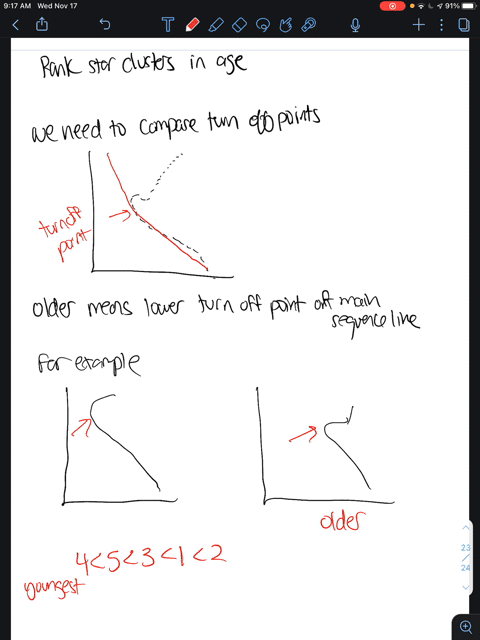 9:17 AM Wed Nov 17
91%
Rank star clusters in age
we need to compare turn off points
turnoff
point
older means lower turn off point off main
sequence line
For example
older
4<5<3<1<2
youngest
23
24